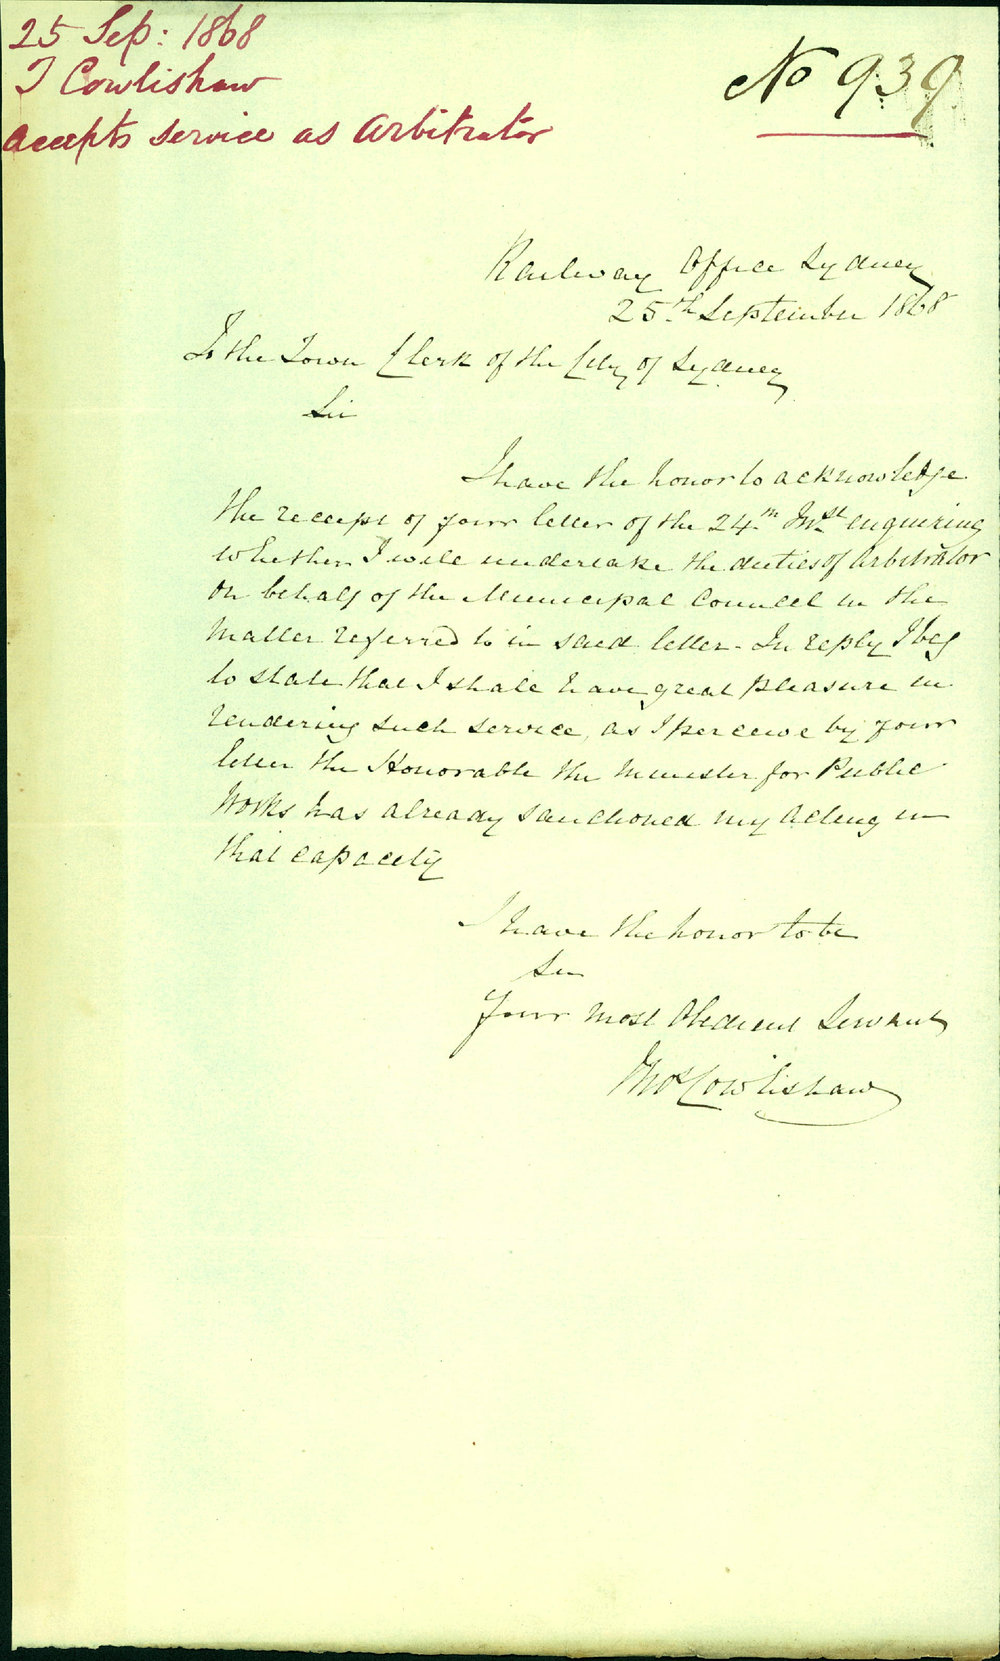 25 Sep: 1868
T Cowlishaw
Accepts service as Arbitrator
No 939
Railway Office Sydney
25th September 1868
To the Town Clerk of the City of Sydney
Sir
I have the honor to acknowledge
the receipt of your letter of the 24th Inst enquiring
whether I will undertake the duties of Arbitrator
on behalf of the Municipal Council in the
matter referred to in said letter. In reply I beg
to state that I shall have great pleasure in
rendering such service, as I perceive by your
letter the Honorable the Minister for Public
Works has already sanctioned my acting in
that capacity
I have the honor to be
Sir
Your most Obedient Servant
Thos Cowlishaw